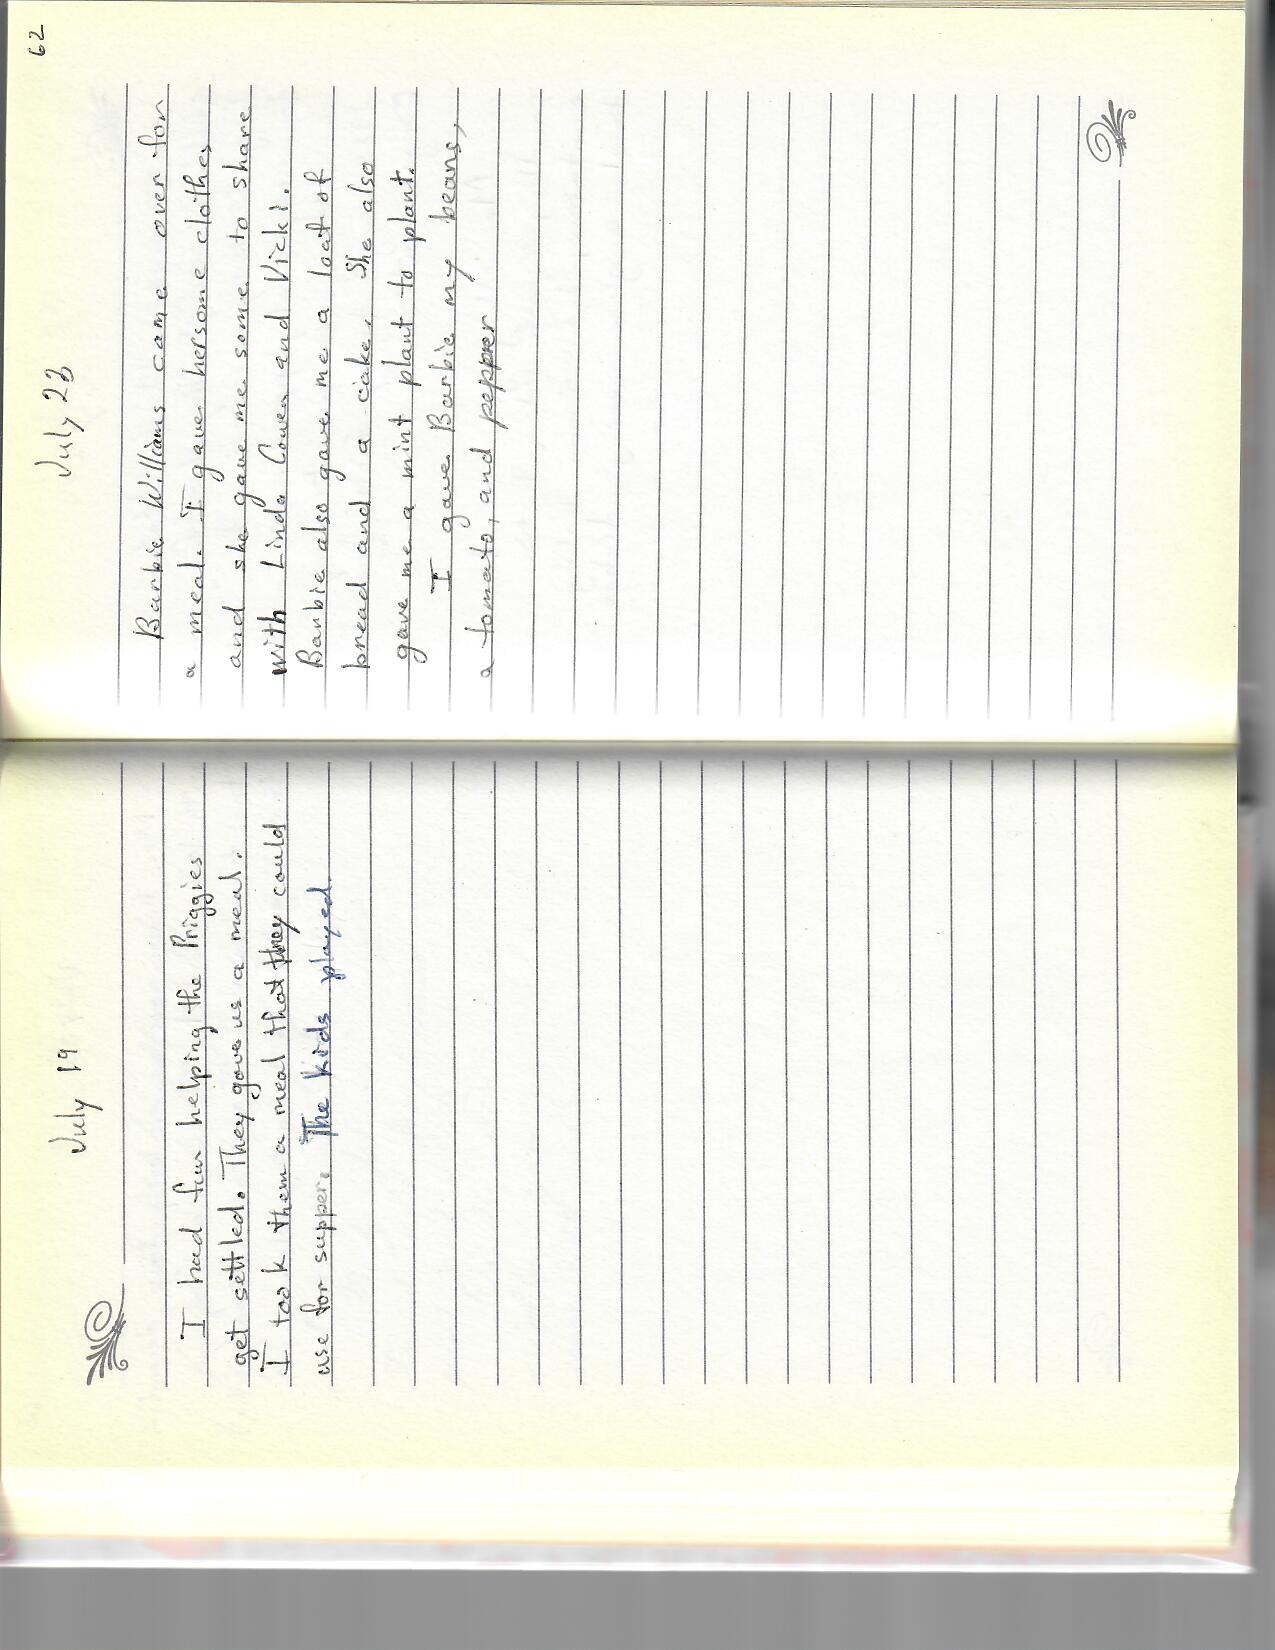 July 19
I had fun helping the Priggies
get settled. They gave us a meal.
I took them a meal that they could
use for supper. The kids played.
62
July 23
Barbie Williams came over for
a meal. I gave her some clothes
and she gave me some to share
with Linda Cowen and Vicki.
Barbie also gave me a loaf of
bread and a cake. She also
gave me a mint plant to plant.
I gave Barbie my beans,
a tomato, and pepper